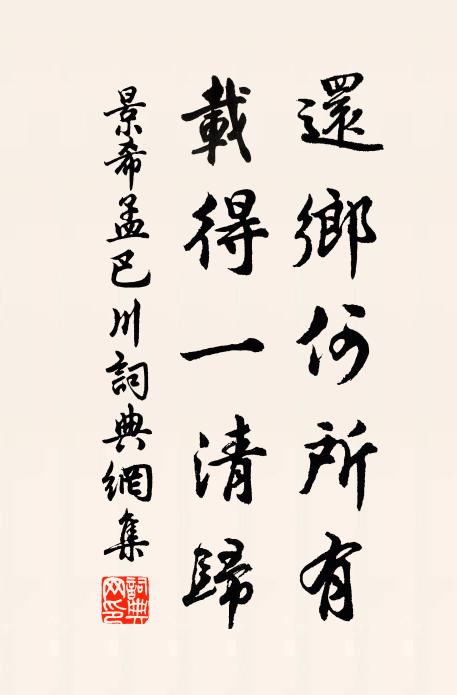 還鄉何所有
載得一清歸
景希孟巴川詞典網集
詞典网印